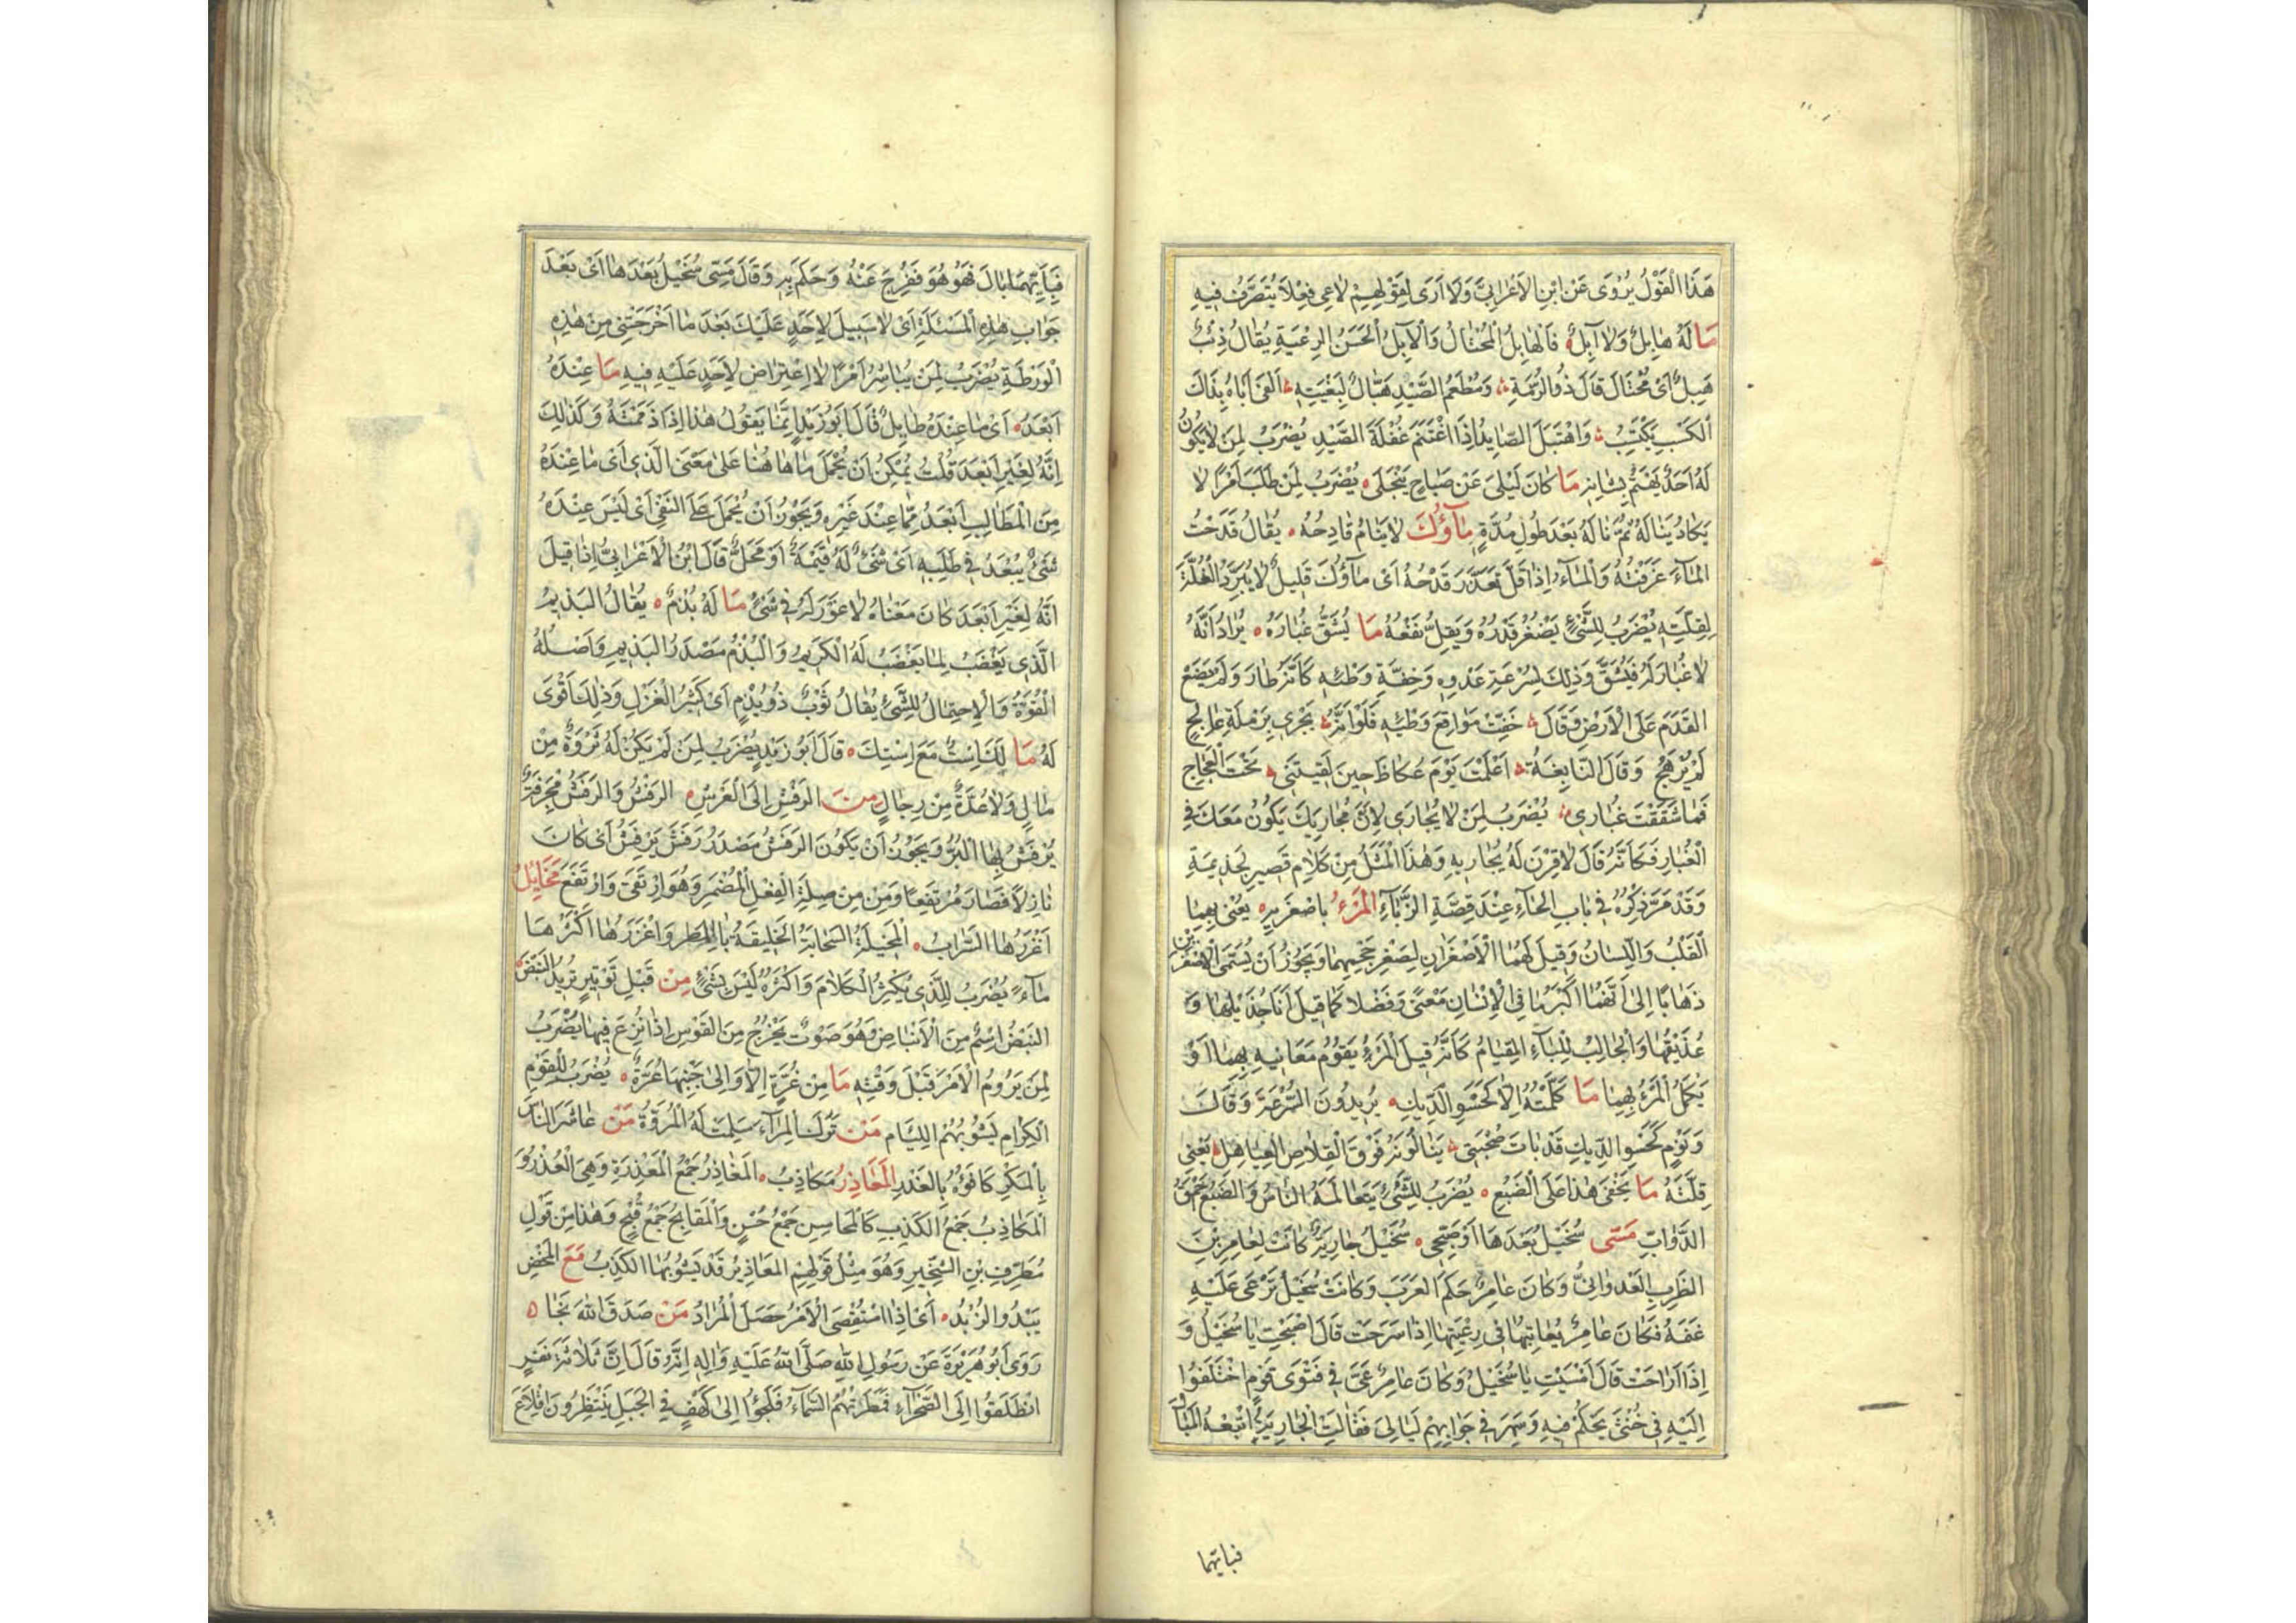 هَذَا الْقَوْلُ يُرْوَى عَنِ ابْنِ الْاَعْرَابِيِّ وَلَا اَرَى لِقَوْلِهِمْ لَاعِى فِعْلًا يُتَصَرَّفُ فِيهِ
مَا لَهُ هَابِلٌ وَلَا آبِلٌ فَالْهَابِلُ الْمُحْتَالُ وَالْآبِلُ الْحَسَنُ الرِّعْيَةِ يُقَالُ ذِئْبٌ
هَبِلٌ اَىْ مُحْتَالٌ قَالَ ذُو الرُّمَّةِ وَمُطْعَمُ الصَّيْدِ هَبَّالٌ لِبُغْيَتِهِ اَلْفَى اَبَاهُ بِذَاكَ
الْكَسْبِ يَكْتَسِبُ وَاهْتَبَلَ الصَّايِدُ اِذَا اغْتَنَمَ غَفْلَةَ الصَّيْدِ يُضْرَبُ لِمَنْ لَا يَكُونُ
لَهُ اَحَدٌ يَهْتَمُّ بِشَانِهِ مَا كَانَ لَيْلِىَ عَنْ صَبَاحٍ يَنْجَلِى يُضْرَبُ لِمَنْ طَلَبَ اَمْرًا لَا
يَكَادُ يَنَالُهُ ثُمَّ نَالَهُ بَعْدَ طُولِ مُدَّةٍ مَآؤُكَ لَا يَنَامُ قَادِحُهُ يُقَالُ قَدَحْتُ
الْمَآءَ غَرَفْتُهُ وَالْمَآءُ اِذَا قَلَّ تَعَذَّرَ قَدْحُهُ اَىْ مَآؤُكَ قَلِيلٌ لَا يُبَرِّدُ الْغُلَّةَ
لِقِلَّتِهِ يُضْرَبُ لِلشَّىْءِ يَصْغُرُ قَدْرُهُ وَيَقِلُّ نَفْعُهُ مَا يُشَقُّ غُبَارُهُ يُرَادُ اَنَّهُ
لَا غُبَارَ لَهُ فَيُشَقَّ وَذٰلِكَ لِسُرْعَةِ عَدْوِهِ وَخِفَّةِ وَطْئِهِ كَاَنَّهُ طَارَ وَلَمْ يَضَعْ
الْقَدَمَ عَلَى الْاَرْضِ وَقَالَ خَفَّتْ مَوَاقِعُ وَطْئِهِ فَلَوْ اَنَّهُ يَجْرِى بِرَمْلَةِ عَالِجٍ
لَمْ يُرْهِجْ وَقَالَ النَّابِغَةُ اَعَلِمْتَ يَوْمَ عُكَاظَ حِينَ لَقِيتَنِى تَحْتَ الْعَجَاجِ
فَمَا شَقَقْتَ غُبَارِى يُضْرَبُ لِمَنْ لَا يُجَارَى لِاَنَّ مُجَارِيَكَ يَكُونُ مَعَكَ فِى
الْغُبَارِ فَكَاَنَّهُ قَالَ لَا قِرْنَ لَهُ يُجَارِيهِ وَهٰذَا الْمَثَلُ مِنْ كَلَامِ قَصِيرٍ لِجَذِيمَةِ
وَقَدْ مَرَّ ذِكْرُهُ فِى بَابِ الْخَآءِ عِنْدَ قِصَّةِ الزَّبَّآءِ الْمَرْءُ بِاَصْغَرَيْهِ يَعْنِى بِهِمَا
الْقَلْبُ وَاللِّسَانُ وَقِيلَ لَهُمَا الْاَصْغَرَانِ لِصِغَرِ حَجْمِهِمَا وَيَجُوزُ اَنْ يُسَمَّى الْاَصْغَرَيْنِ
ذَهَابًا اِلٰى اَنَّهُمَا اَكْبَرُ مَا فِى الْاِنْسَانِ مَعْنًى وَفَضْلًا كَمَا قِيلَ اَنَا جُذَيْلُهَا وَ
عُذَيْقُهَا وَالْجَالِبُ لِلْبَآءِ الْقِيَامُ كَاَنَّهُ قِيلَ الْمَرْءُ يَقُومُ مَعَانِيهِ بِهِمَا اَوْ
يَكْمُلُ الْمَرْءُ بِهِمَا مَا كَلَّمْتُهُ اِلَّا كَحَسْوِ الدِّيكِ يُرِيدُونَ السُّرْعَةَ وَقَالَ
وَنَوْمٍ كَحَسْوِ الدِّيكِ قَدْ بَاتَ صُحْبَتِى يَنَالُونَهُ فَوْقَ الْقِلَاصِ الْعَيَاهِلِ يَعْنِى
قِلَّتَهُ مَا يَخْفَى هٰذَا عَلَى الضَّبُعِ يُضْرَبُ لِلشَّىْءِ يَتَعَالَمُهُ النَّاسُ وَالضَّبُعُ اَحْمَقُ
الدَّوَابِّ مَسِّى سُخَيْلُ بَعْدَهَا اَوْ صَبِّحِى سُخَيْلُ جَارِيَةٌ كَانَتْ لِعَامِرِ بْنِ
الظَّرِبِ الْعَدْوَانِىُّ وَكَانَ عَامِرٌ حَكَمَ الْعَرَبِ وَكَانَتْ سُخَيْلُ تَرْعَى عَلَيْهِ
غَنَمَهُ فَكَانَ عَامِرٌ يُعَاتِبُهَا فِى رِعْيَتِهَا اِذَا سَرَحَتْ قَالَ اَصْبَحْتِ يَا سُخَيْلُ وَ
اِذَا اَرَاحَتْ قَالَ اَمْسَيْتِ يَا سُخَيْلُ وَكَانَ عَامِرٌ عَىَّ فِى فَتْوَى قَوْمٍ اخْتَلَفُوا
اِلَيْهِ فِى خُنْثَى يَحْكُمُ فِيهِ وَسَهِرَ فِى جَوَابِهِمْ لَيَالِىَ فَقَالَتِ الْجَارِيَةُ اَتْبِعْهُ الْمَبَالَ
فبايتهما
فَبِاَيِّهِمَا بَالَ فَهُوَ هُوَ فَفُرِّجَ عَنْهُ وَحَكَمَ بِهِ وَقَالَ مَسِّى سُخَيْلُ بَعْدَهَا اَىْ بَعْدَ
جَوَابِ هٰذِهِ الْمَسْئَلَةِ اَىْ لَا سَبِيلَ لِاَحَدٍ عَلَيْكَ بَعْدَ مَا اَخْرَجْتِنِى مِنْ هٰذِهِ
الْوَرْطَةِ يُضْرَبُ لِمَنْ يُبَاشِرُ اَمْرًا لَا اِعْتِرَاضَ لِاَحَدٍ عَلَيْهِ فِيهِ مَا عِنْدَهُ
اَبْعَدُ اَىْ مَا عِنْدَهُ طَايِلٌ قَالَ اَبُو زَيْدٍ اِنَّمَا يَقُولُ هٰذَا اِذَا ذَمَمْتَهُ وَكَذٰلِكَ
اِنَّهُ لَغَيْرُ اَبْعَدَ قُلْتُ يُمْكِنُ اَنْ يُحْمَلَ مَا هَاهُنَا عَلَى مَعْنَى الَّذِى اَىْ مَا عِنْدَهُ
مِنَ الْمَطَالِبِ اَبْعَدُ مِمَّا عِنْدَ غَيْرِهِ وَيَجُوزُ اَنْ يُحْمَلَ عَلَى النَّفْىِ اَىْ لَيْسَ عِنْدَهُ
شَىْءٌ يُبْعَدُ فِى طَلَبِهِ اَىْ شَىْءٌ لَهُ قِيمَةٌ اَوْ مَحَلٌّ قَالَ ابْنُ الْاَعْرَابِىِّ اِذَا قِيلَ
اِنَّهُ لَغَيْرُ اَبْعَدَ كَانَ مَعْنَاهُ لَا غَوْرَ لَهُ فِى شَىْءٍ مَا لَهُ بُذْمٌ يُقَالُ الْبَذِيمُ
الَّذِى يَغْضَبُ لِمَا يَغْضَبُ لَهُ الْكَرِيمُ وَالْبُذْمُ مَصْدَرُ الْبَذِيمِ وَاَصْلُهُ
الْقُوَّةُ وَالْاِحْتِمَالُ لِلشَّىْءِ يُقَالُ ثَوْبٌ ذُو بُذْمٍ اَىْ كَثِيرُ الْغَزْلِ وَذٰلِكَ اَقْوَى
لَهُ مَا لَكَ اِسْتٌ مَعَ اِسْتِكَ قَالَ اَبُو زَيْدٍ يُضْرَبُ لِمَنْ لَمْ يَكُنْ لَهُ ثَرْوَةٌ مِنْ
مَالٍ وَلَا عُدَّةٌ مِنْ رِجَالٍ مِنَ الرَّفْشِ اِلَى الْعَرْشِ الرَّفْشُ وَالرَّفْشُ مِجْرَفَةٌ
يُرْفَشُ بِهَا الْبُرُّ وَيَجُوزُ اَنْ يَكُونَ الرَّفْشُ مَصْدَرُ رَفَشَ يَرْفِشُ اَىْ كَانَ
نَازِلًا فَصَارَ مُرْتَفِعًا وَمِنْ مِنْ صِلَةِ الْفِعْلِ الْمُضْمَرِ وَهُوَ ارْتَقَى وَارْتَفَعَ مَخَايِلُ
اَغْزَرُهَا السَّرَابُ الْمَخِيلَةُ السَّحَابَةُ الْخَلِيقَةُ بِالْمَطَرِ وَاَغْزَرُهَا اَكْثَرُهَا
مَآءً يُضْرَبُ لِلَّذِى يُكْثِرُ الْكَلَامَ وَاَكْثَرُهُ لَيْسَ بِشَىْءٍ مِنْ قَبْلِ تَوْتِيرٍ تُرِيدُ النَّبْضَ
النَّبْضُ اِسْمٌ مِنَ الْاَنْبَاضِ وَهُوَ صَوْتٌ يَخْرُجُ مِنَ الْقَوْسِ اِذَا نُزِعَ فِيهَا يُضْرَبُ
لِمَنْ يَرُومُ الْاَمْرَ قَبْلَ وَقْتِهِ مَا مِنْ غُرَّةٍ اِلَّا وَاِلٰى جَنْبِهَا عُرَّةٌ يُضْرَبُ لِلْقَوْمِ
الْكِرَامِ يَشُوبُهُمُ اللِّيَامُ مَنْ تَرَكَ الْمِرَآءَ سَلِمَتْ لَهُ الْمُرُوَّةُ مَنْ عَاشَرَ النَّاسَ
بِالْمَكْرِ كَافَوْهُ بِالْغَدْرِ الْمَعَاذِرُ مَكَاذِبُ الْمَعَاذِرُ جَمْعُ الْمَعْذِرَةِ وَهِىَ الْعُذْرُ وَ
الْمَكَاذِبُ جَمْعُ الْكَذِبِ كَالْمَحَاسِنِ جَمْعُ حُسْنٍ وَالْمَقَابِحِ جَمْعُ قُبْحٍ وَهٰذَا مِنْ قَوْلِ
مُطَرِّفِ بْنِ الشِّخِّيرِ وَهُوَ مِثْلُ قَوْلِهِمْ الْمَعَاذِيرُ قَدْ يَشُوبُهَا الْكَذِبُ مَعَ الْمَخْضِ
يَبْدُو الزُّبْدُ اَىْ اِذَا اسْتُقْصِىَ الْاَمْرُ حَصَلَ الْمُرَادُ مَنْ صَدَقَ اللّٰهَ نَجَا
رَوَى اَبُو هُرَيْرَةَ عَنْ رَسُولِ اللّٰهِ صَلَّى اللّٰهُ عَلَيْهِ وَاٰلِهِ اِنَّهُ قَالَ اِنَّ ثَلَاثَةَ نَفَرٍ
انْطَلَقُوا اِلَى الصَّحْرَآءِ فَمَطَرَتْهُمُ السَّمَآءُ فَلَجَؤُا اِلٰى كَهْفٍ فِى الْجَبَلِ يَنْتَظِرُونَ اِقْلَاعَ